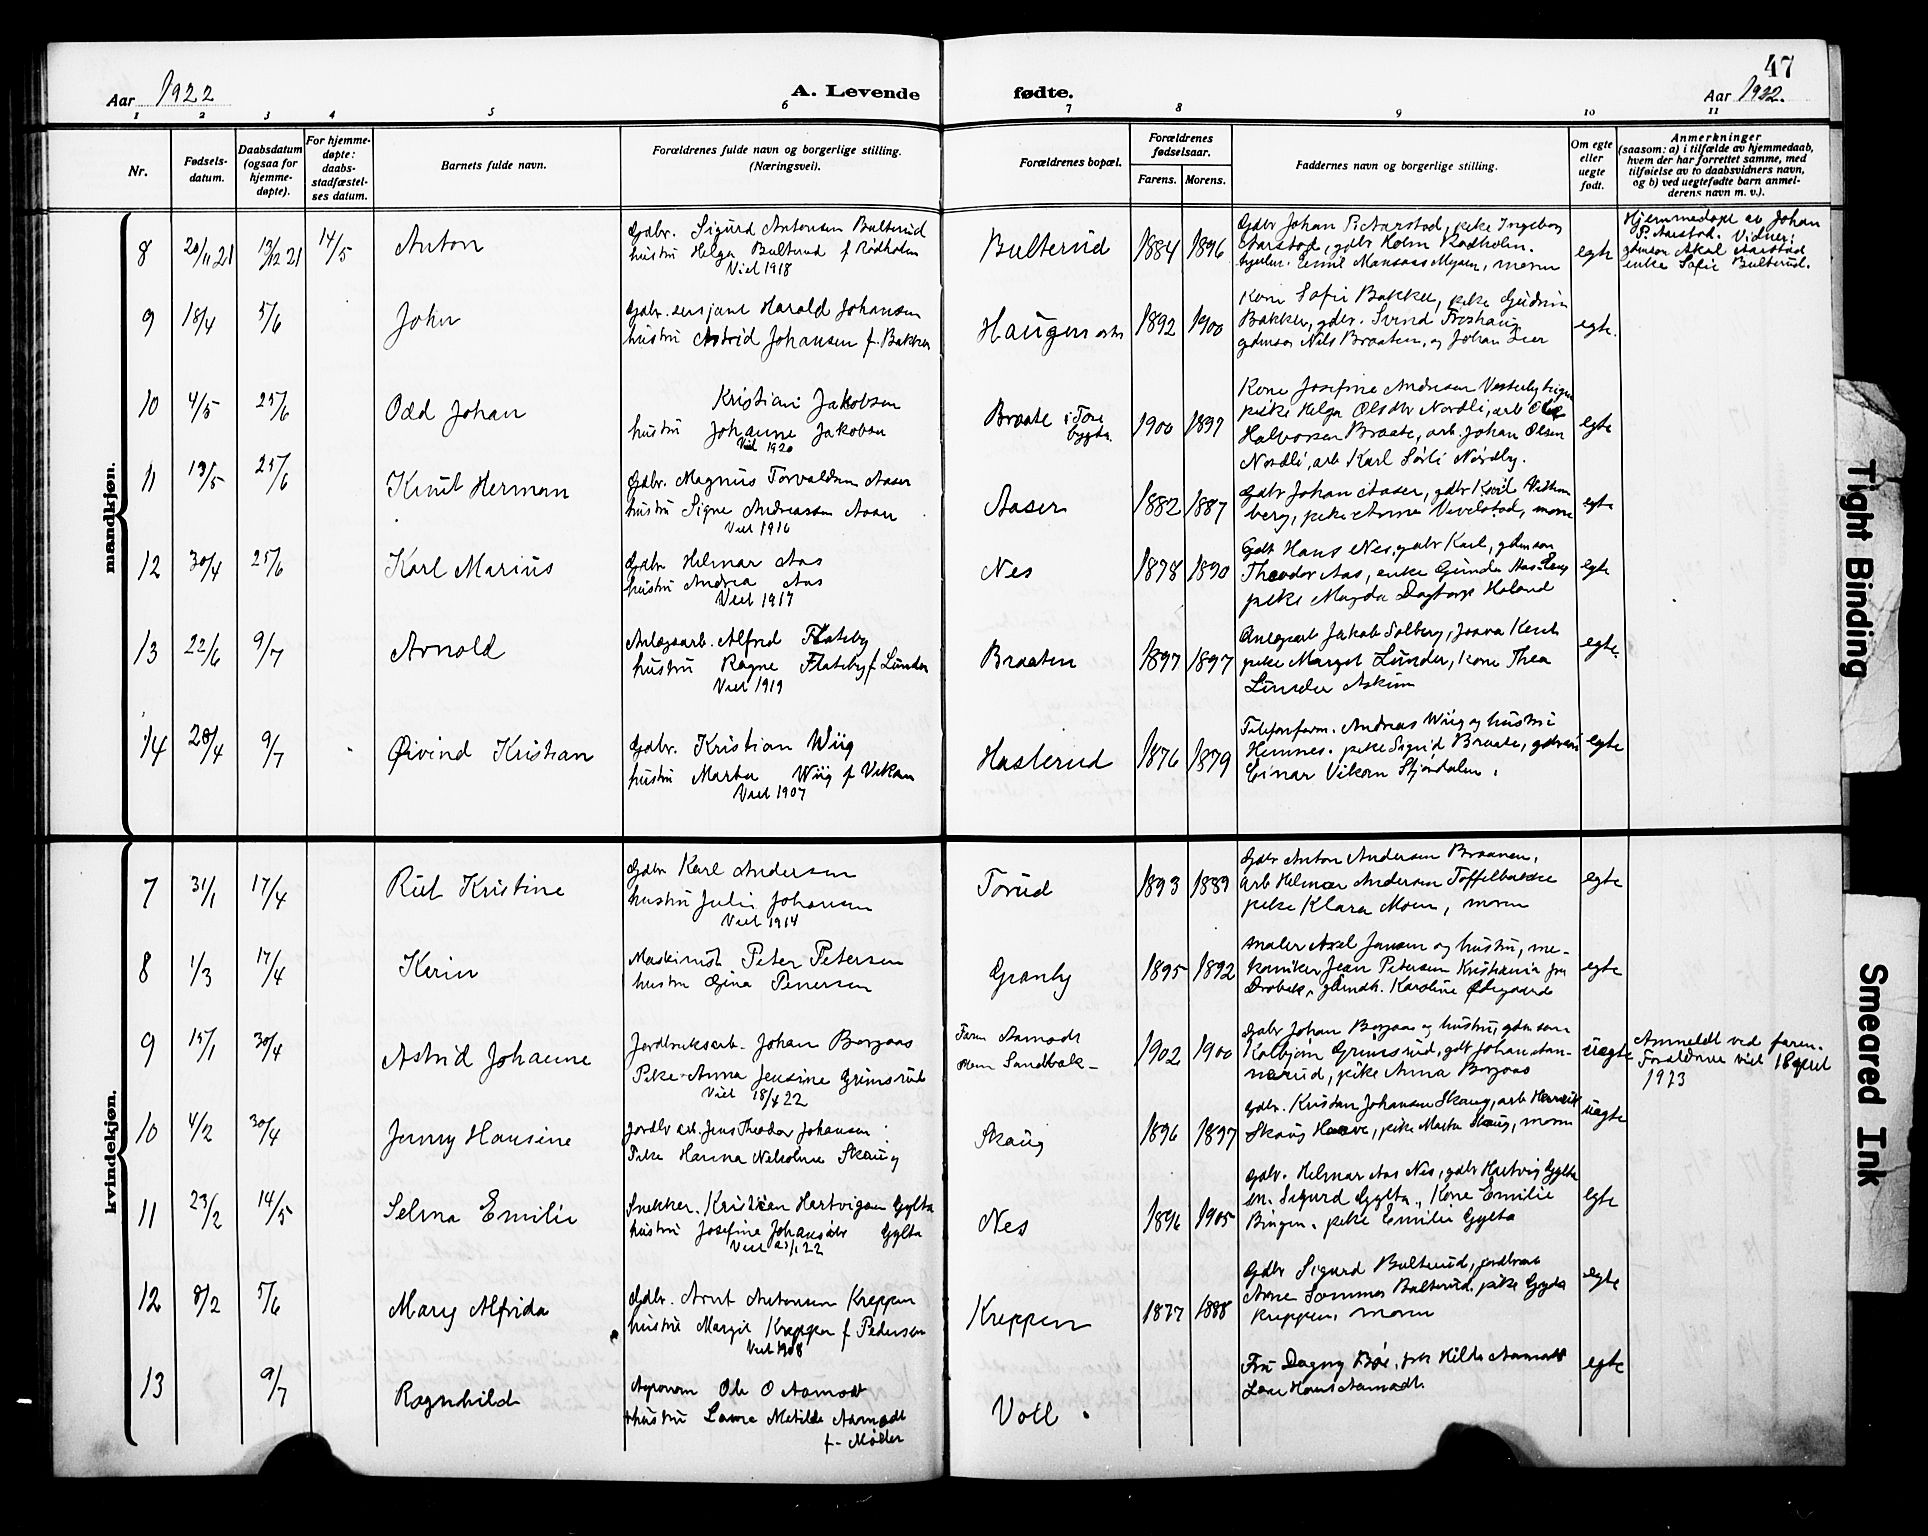 47
Aar 1922
A. Levende
fødte.
Aar 1922.
1 2 3 4 5 6 7 8 9 10 11
Nr.
Fødsels-
datum.
Daabsdatum
(ogsaa for
hjemme-
døpte).
For hjemme-
døpte:
daabs-
stadfæstel-
ses datum.
Barnets fulde navn.
Forældrenes fulde navn og borgerlige stilling.
(Næringsvei).
Forældrenes bopæl.
Forældrenes
fødselsaar.
Farens. Morens.
Faddernes navn og borgerlige stilling.
Om egte
eller
uegte
født.
Anmerkninger
(saasom: a) i tilfælde av hjemmedaab,
hvem der har forrettet samme, med
tilføielse av to daabsvidners navn,
og b) ved uegtefødte barn anmel-
derens navn m. v.).
mandkjøn.
8 20/11 21 13/12 21 14/5 Anton
Gdbr. Sigurd Antonsen Bulterud
hustru Helga Bulterud f Rødholm
Viet 1918
Bulterud 1884 1896
Gdbr Johan P. Aarstad, pike Ingeborg
Aarstad, gdbr Holm Rødholm.
Emil Mansaas Mysen, moren
egte
Hjemmedøpt av Johan
P. Aarstad. Vidner:
gdmson Aksel Aarstad
enke Sofie Bulterud.
9 18/4 5/6 John
Gdbr. sersjant Harald Johansen
hustru Astrid Johansen f. Bakker
Haugen 1892 1900
Kone Sofie Bakker, pike Gudrun
Bakker, gdbr. Svend Froshaug,
gdmson Nils Braaten, og Johan Lier
egte.
10 4/5 25/6 Odd Johan
Kristian Jakobsen
hustru Johanne Jakobsen
Viet 1920
Braate i Tore
bygda 1900 1897
Kone Josefine Andresen Vesterby
pike Helga Olsdtr Nordli, arb Ole
Halvorsen Braate, arb. Johan Olsen
Nordli, arb Karl Sørli Nordby.
egte
11 13/5 25/6 Knut Herman
Gdbr. Magnus Torvaldsen Aaser
hustru Signe Andreassen Aaser
Viet 1916
Aaser 1882 1887
Gdbr Johan Aaser, gdbr
berg, pike Anna Vevelstad, moren
egte
12 30/4 25/6 Karl Marius
Gdbr Helmar Aas
hustru Andrea Aas
Viet 1917
Nes 1878 1890
Gdbr Hans Nes, gdbr Karl, gdmson
Theodor Aas, enke Gunda Aas
pike Magda Dagtorp Høland
egte
13 22/6 9/7 Arnold
Anlegsarb. Alfred Flateby
hustru Ragne Flateby f Lunder
Viet 1919
Braaten 1897 1897
Anlegsarb Jakob Solberg,
pike Margit Lunder, kone Thea
Lunder Askim
egte.
14 28/4 9/7 Øivind Kristian
Gdbr. Kristian Wiig
hustru Marta Wiig f Vikan
Viet 1907
Hasterud 1876 1879
Telefonform. Andreas Wiig og hustru
Hemnes. pike Sigrid Braate,
Einar Vikan Stjørdalen.
egte
kvindekjøn.
7 31/1 17/4 Rut Kristine
Gdbr Karl Andersen
hustru Julie Johansen
Viet 1914
Torud 1893 1889
Gdbr Anton Andersen Braanen,
arb Helmer Andersen Toffelbakke
pike Klara Moen, moren
egte
8 1/3 17/4 Karin
Maskinist Peter Petersen
hustru Gina Petersen
Granby 1895 1892
Maler Axel Jansen og hustru, me-
kaniker Jean Petersen Kristiania
Drøbak, Karoline Ødegaard
egte
9 15/1 30/4 Astrid Johanne
Jordbruksarb. Johan Borgaas
Pike Anna Jensine Grimsrud
Viet 18/4 22
Faren Aamodt
Moren Sandbæk 1902 1900
Gdbr Johan Borgaas og hustru, gdmson
Kolbjørn Grimsrud, gdbr Johan Aam-
nærud, pike Anna Borgaas
uegte
Anmeldt ved faren.
Forældrene viet 18 april
1923
10 4/2 30/4 Jenny Hansine
Jordbr arb. Jens Theodor Johansen
Pike Hanna Nekoline Skaug
Skaug 1896 1897
Gdbr. Kristian Johansen Skaug, arb Henrik
Skaug, pike Marta Skaug, moren
uegte
11 23/2 14/5 Selma Emilie
Snekker. Kristian Hartvigsen Gylta
hustru Josefine Johansdtr Gylta
Viet 22
Nes 1896 1905
Gdbr. Helmar Aas Nes, gdbr Hartvig Gylta
Sigurd Gylta, Kone Emilie
Bingen. pike Emilie Gylta
egte
12 8/2 5/6 Mary Alfrida
Gdbr. Arnt Antonsen Kreppen
hustru Margit Kreppen f Pedersen
Viet 1908
Kreppen 1877 1888
Gdbr Sigurd Bulterud, jordbrarb
Arne Sommer Bulterud. pike Gyda
Kreppen, moren
egte
13 9/7 Ragnhild
Agronom Ole O Aamodt
hustru Laura Metilde Aamodt
f. Møller
Voll.
Fru Dagny Bøe, frk Hilda Aamodt
Hans Aamodt.
egte
Tight Binding
Smeared Ink